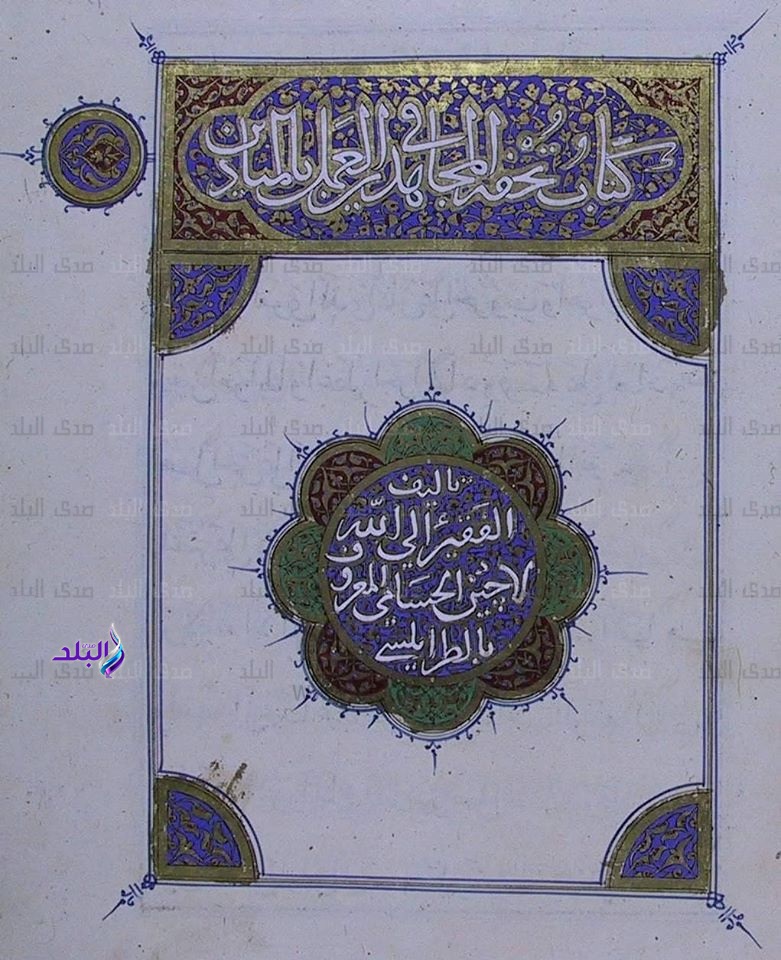 كتاب تحفة المجاهدين في العمل بالميادين
تاليف
الفقير الى الله
لاجين الحسامي المعروف
بالطرابلسي
صدى البلد